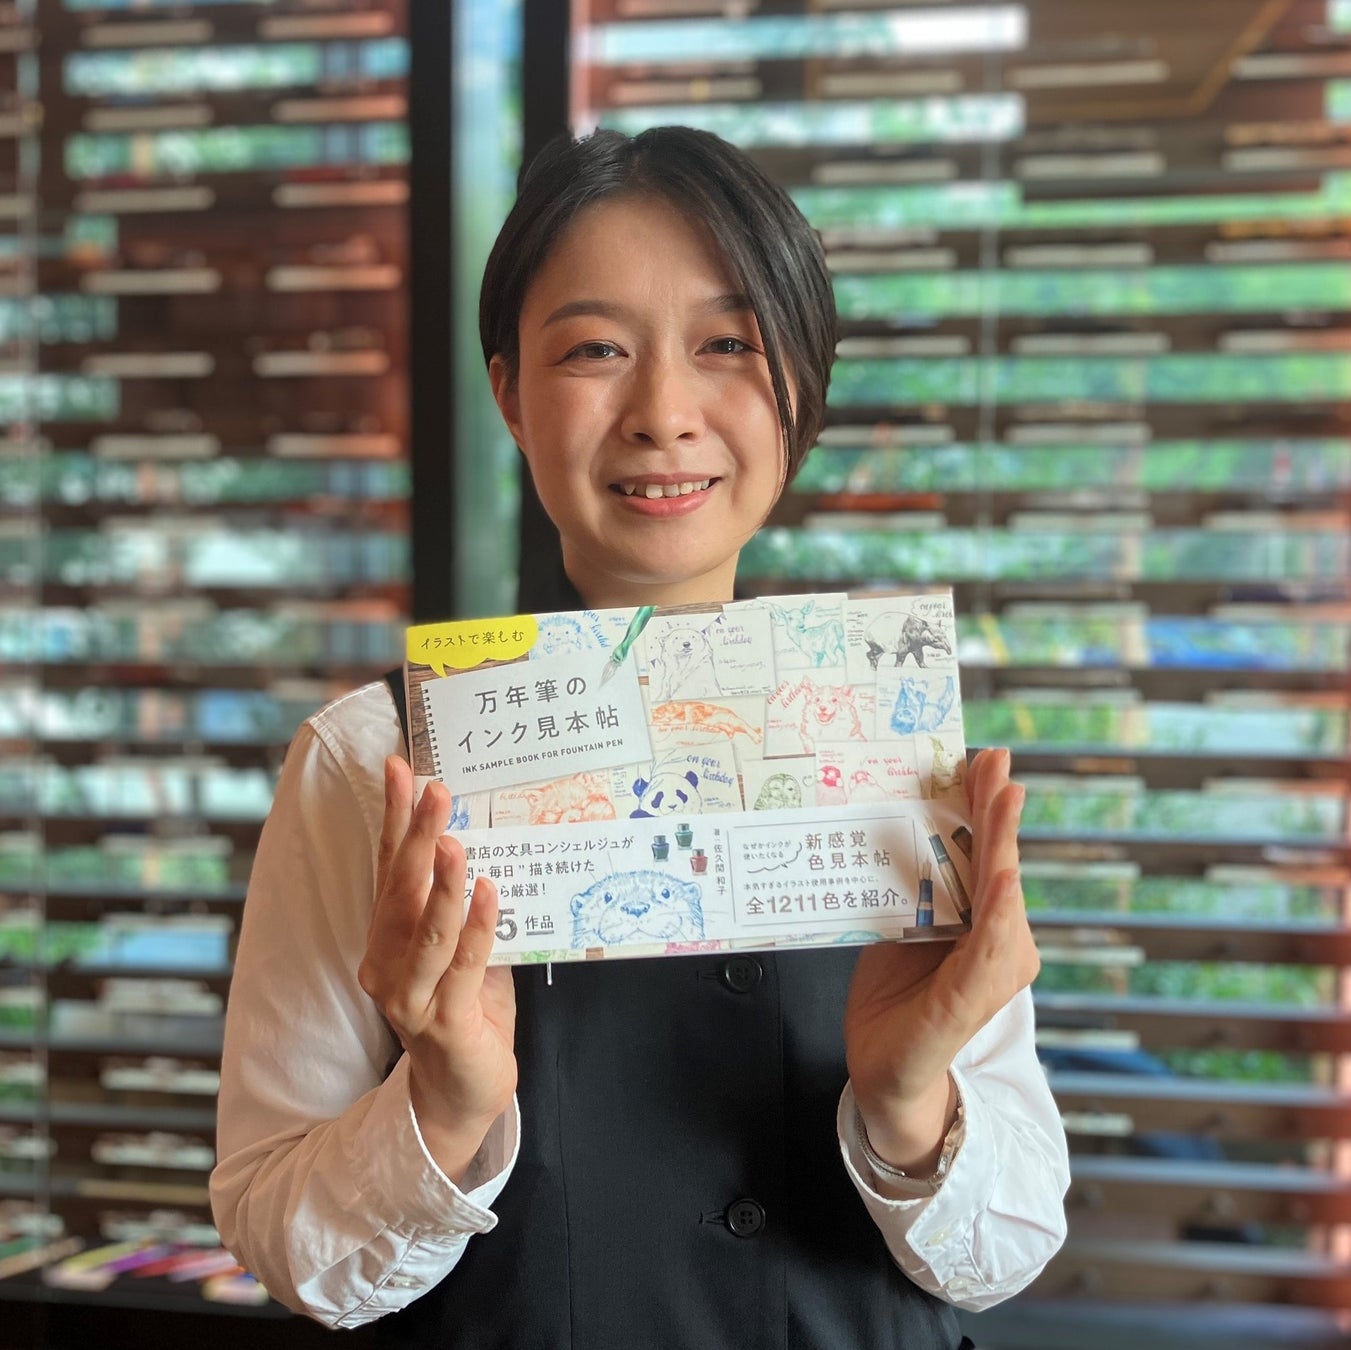 イラストで楽しむ
万年筆の
インク見本帖
INK SAMPLE BOOK FOR FOUNTAIN PEN
on your
birthday
on your
birthday
on your
birthday
書店の文具コンシェルジュが
間"毎日"描き続けた
ら厳選!
5 作品
著:佐久間 和子
なぜかインクが
使いたくなる
新感覚
色見本帖
本気すぎるイラスト使用事例を中心に、
全1211色を紹介。